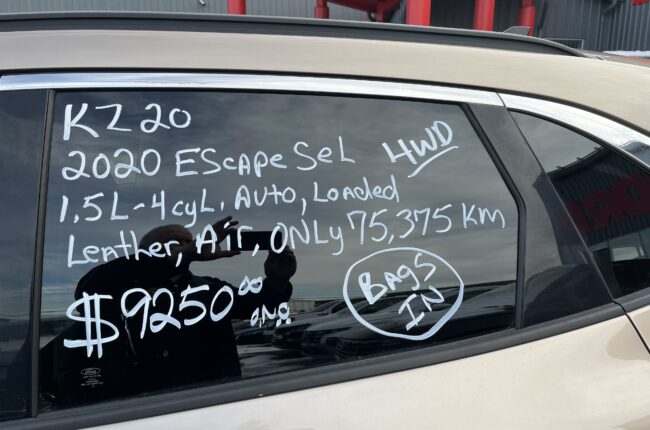 KZ20
2020 EScapE SeL 4WD
1,5L-4cyL. AuTo, Loaded
Leather, Air, ONLy 75,375 Km
$9250⁰⁰ O.N.O
BAgS IN
Ford